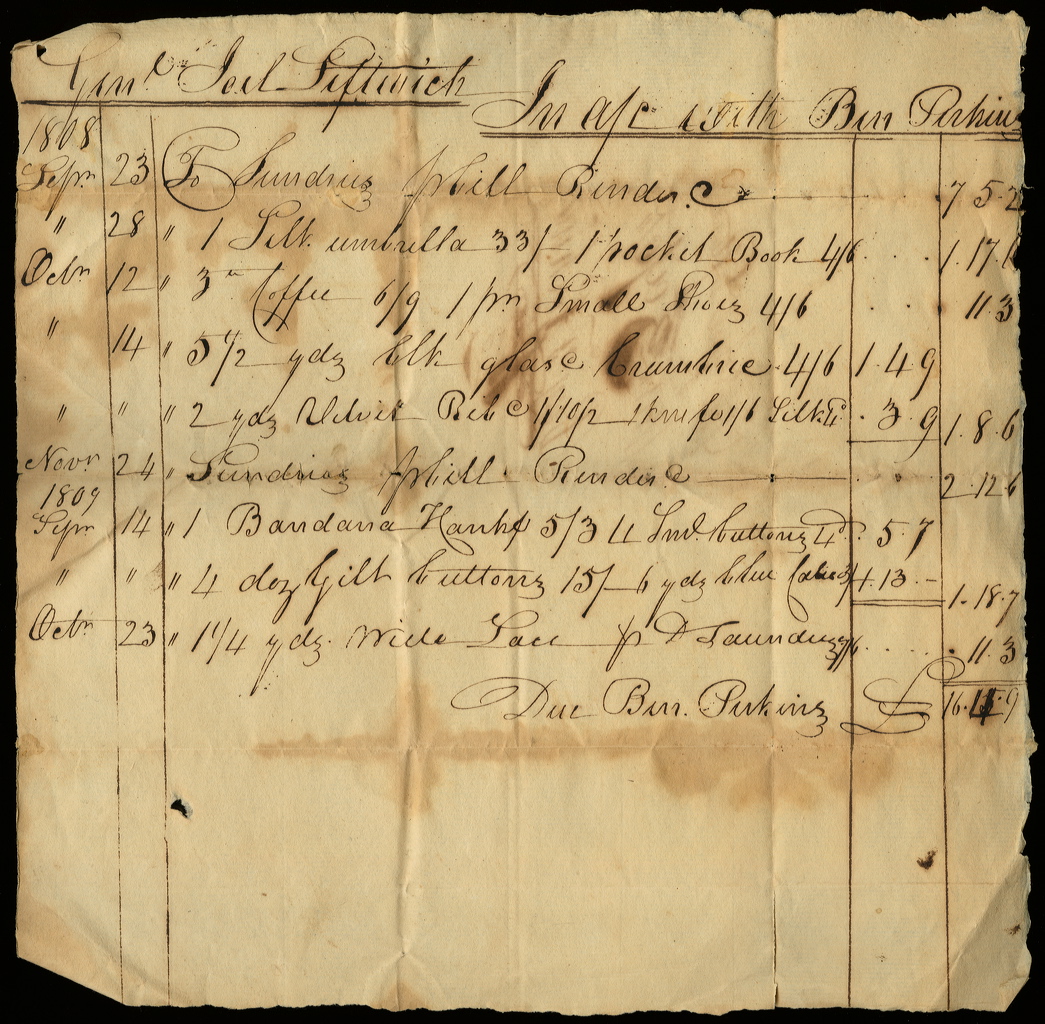 Genl. Joel Leftwich
In a/c with Ben Perkins
1808
Sepr 23 To Sundries pr bill Renderd 7 5. 2
" 28 " 1 Silk umbrella 33/- 1 pocket Book 4/6 1. 17. 6
Octr 12 " 3 Coffee 6/9 1 pr Small Shoes 4/6 11. 3
" 14 " 5 1/2 yds blk glase 4/6 1. 4. 9
" " " 2 yds Velvet 1/6 Silk 3. 9 1. 8. 6
Novr 24 " Sundries pr bill Renderd 2. 12. 6
1809
Sepr 14 " 1 Bandana Hankf 5/3 4 buttons 4d 5. 7
" " " 4 doz Gilt buttons 15/- 6 yds blue 1. 13. - 1. 18. 7
Octr 23 " 1 1/4 yds. Wide Lace pr D Saunders 11. 3
Due Ben. Perkins £ 16. 9